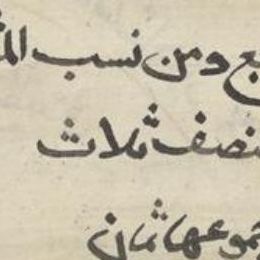 بع ومن نسب الم
نصف ثلاث
مجموعها ثمان